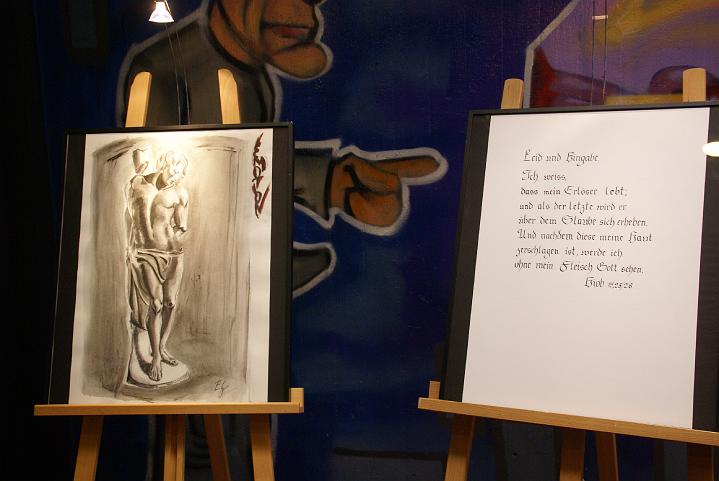 Leid und Hingabe
Ich weiss,
dass mein Erlöser lebt,
und als der letzte wird er
über dem Staube sich erheben.
Und nachdem diese meine Haut
zerschlagen ist, werde ich
ohne mein Fleisch Gott sehen.
Hiob 19,25-26